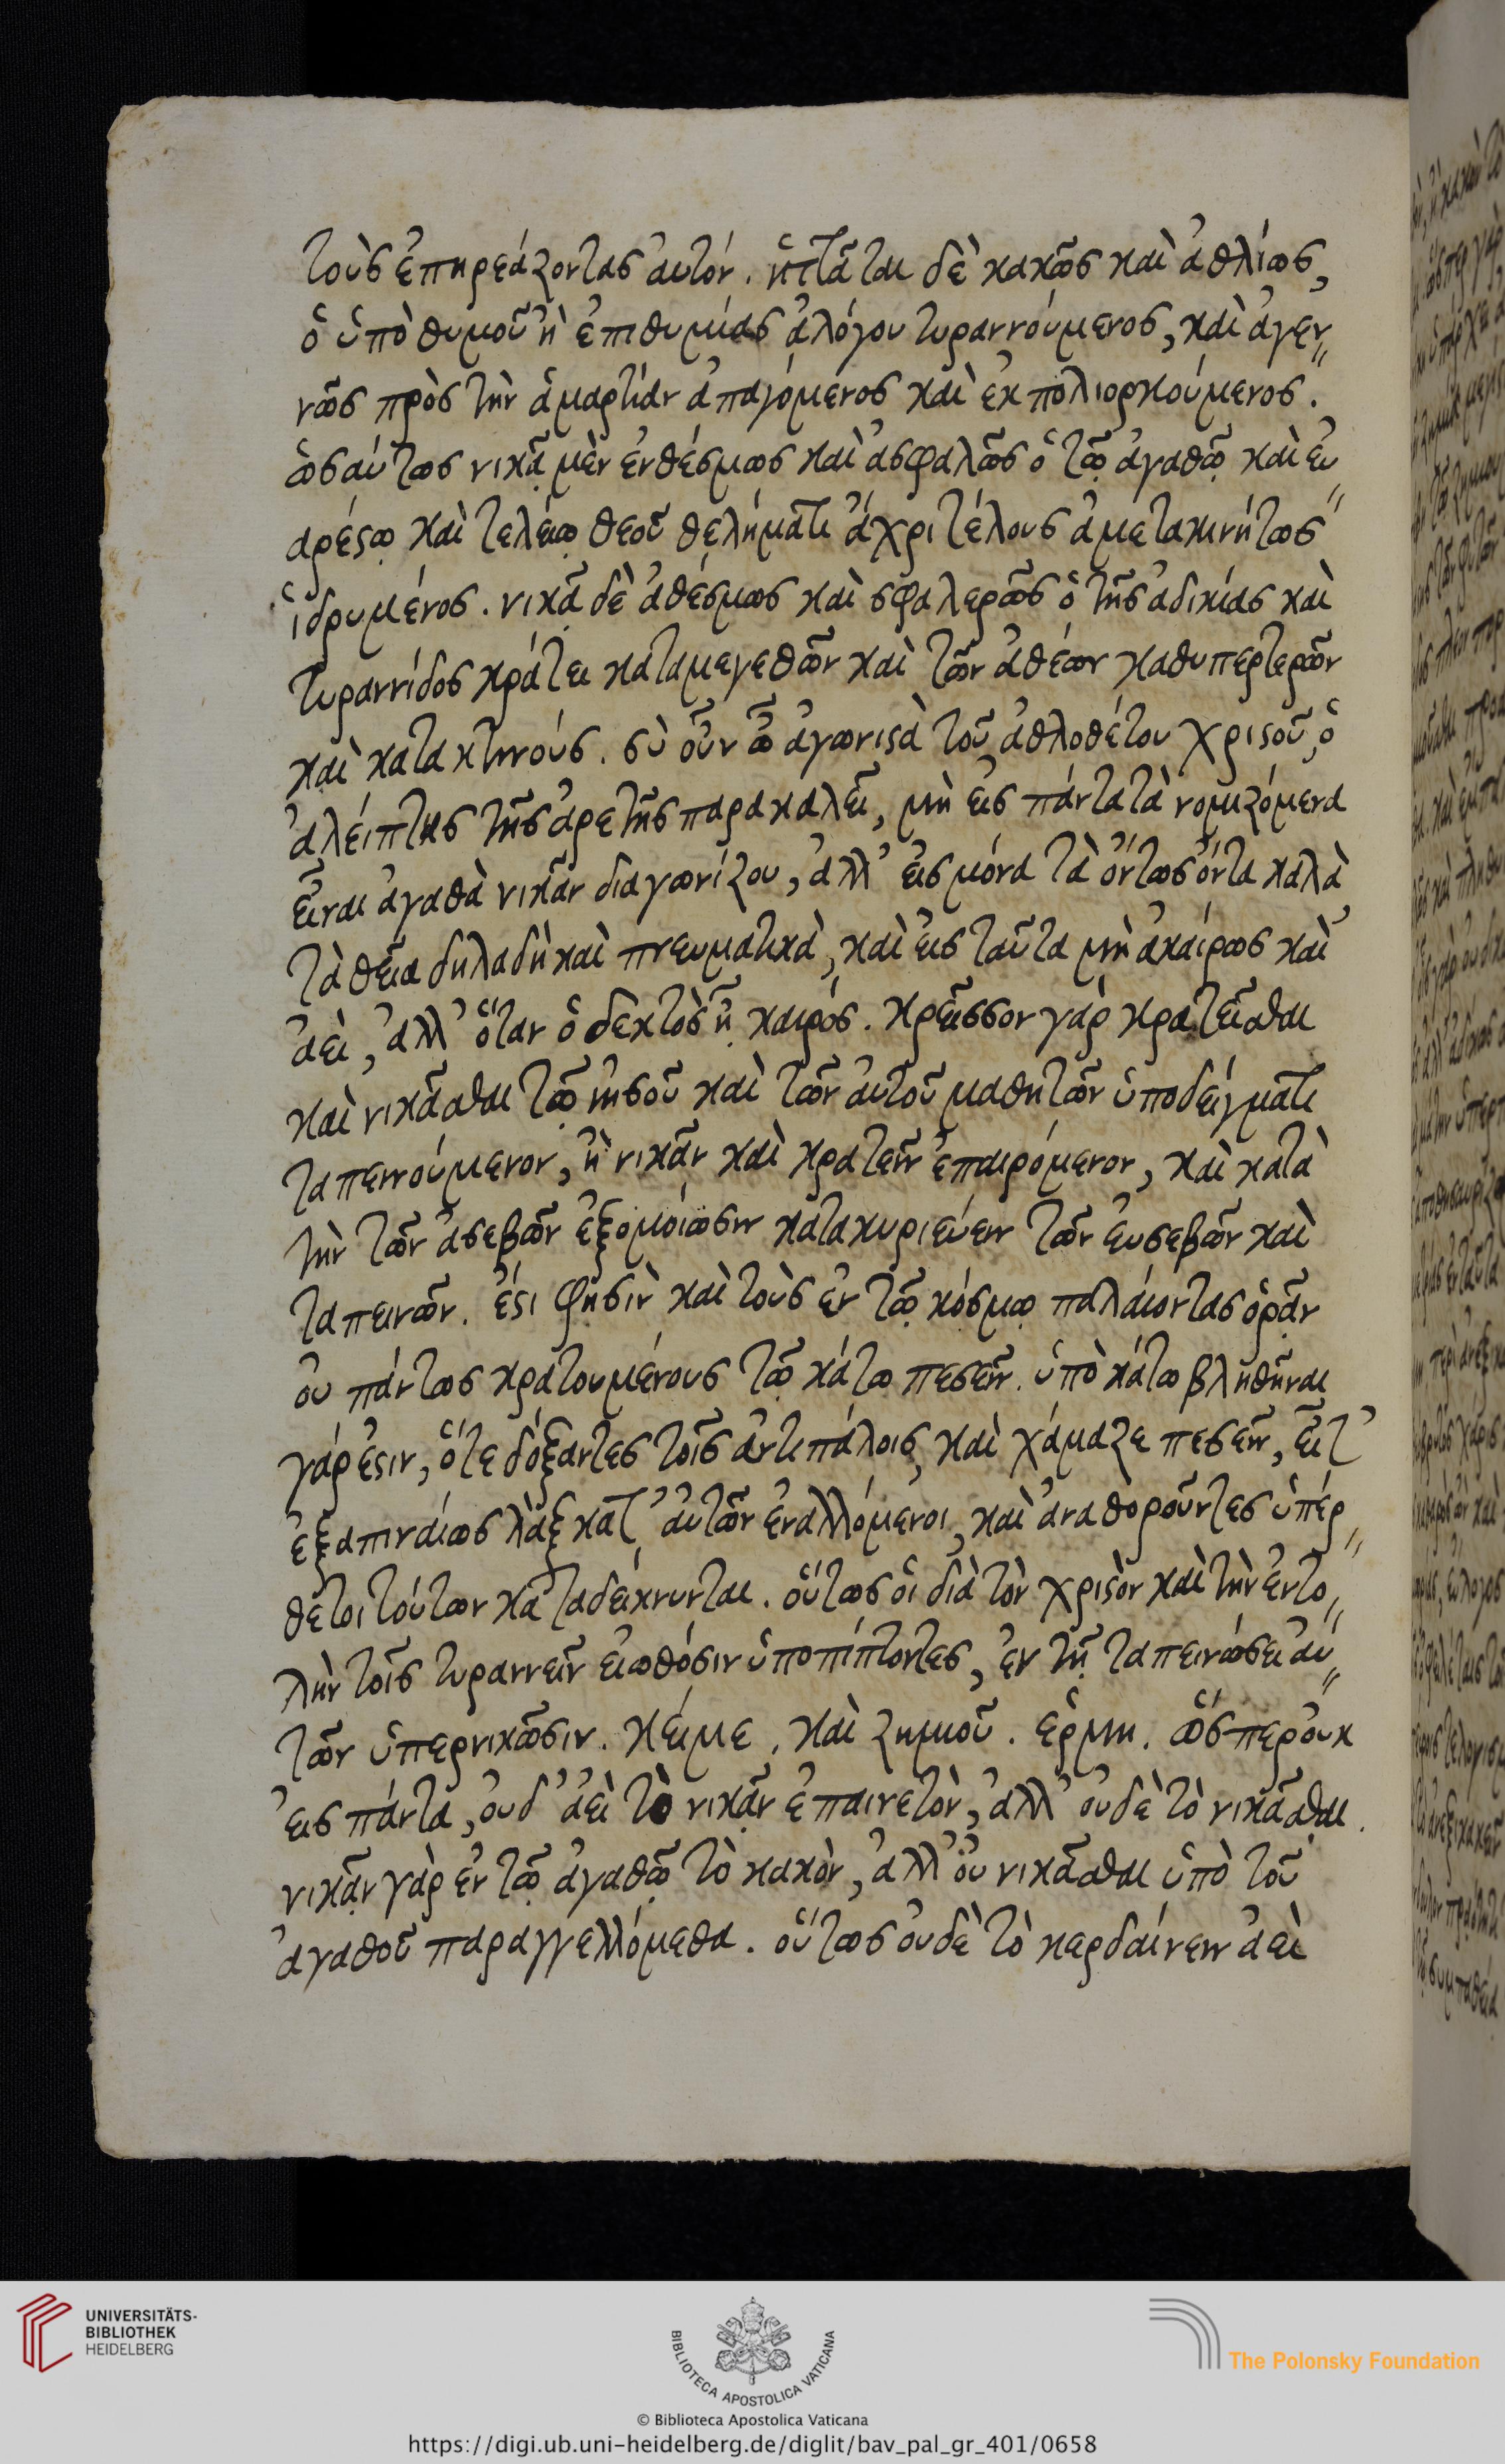 τοὺς ἐπηρεάζοντας αὐτόν. ἡττᾶται δὲ κακῶς καὶ ἀθλίως,
ὁ ὑπὸ θυμοῦ ἢ ἐπιθυμίας ἀλόγου τυραννούμενος, καὶ ἀγεν〃
νῶς πρὸς τὴν ἁμαρτίαν ἀπαγόμενος καὶ ἐκπολιορκούμενος.
ὡσαύτως νικᾷ μὲν ἐνθέσμως καὶ ἀσφαλῶς ὁ τῷ ἀγαθῷ καὶ εὐ〃
αρέστῳ καὶ τελείῳ θεοῦ θελήματι ἄχρι τέλους ἀμετακινήτως
ἱδρυμένος. νικᾷ δὲ ἀθέσμως καὶ σφαλερῶς ὁ τῆς ἀδικίας καὶ
τυραννίδος κράτει καταμεγεθῶν καὶ τῶν ἀθέων καθυπερτερῶν
καὶ κατακτηνούς. σὺ οὖν ὦ ἀγωνιστὰ τοῦ ἀθλοθέτου χριστοῦ, ὁ
ἀλείπτης τῆς ἀρετῆς παρακαλεῖ, μὴ εἰς πάντα τὰ νομιζόμενα
εἶναι ἀγαθὰ νικᾶν διαγωνίζου, ἀλλ' εἰς μόνα τὰ ὄντως ὄντα καλὰ
τὰ θεῖα δηλαδὴ καὶ πνευματικὰ, καὶ εἰς ταῦτα μὴ ἀκαίρως καὶ
ἀεὶ, ἀλλ' ὅταν ὁ δεκτὸς ᾖ καιρός. κρεῖσσον γὰρ κρατεῖσθαι
καὶ νικᾶσθαι τῷ ἰησοῦ καὶ τῶν αὐτοῦ μαθητῶν ὑποδείγματι
ταπεινούμενον, ἢ νικᾶν καὶ κρατεῖν ἐπαιρόμενον, καὶ κατὰ
τὴν τῶν ἀσεβῶν ἐξομοίωσιν κατακυριεύειν τῶν εὐσεβῶν καὶ
ταπεινῶν. ἔστι φησὶν καὶ τοὺς ἐν τῷ κόσμῳ παλαίοντας ὁρᾷν
οὐ πάντως κρατουμένους τῷ κάτω πεσεῖν. ὑπὸ κάτω βληθῆναι
γάρ ἐστιν, ὅτε δόξαντες τοῖς ἀντιπάλοις, καὶ χάμαζε πεσεῖν, εἶτ'
ἐξαπιναίως λὰξ κατ' αὐτῶν ἐναλλόμενοι, καὶ ἀναθοροῦντες ὑπέρ〃
θετοι τούτων καταδείκνυνται. οὕτως οἱ διὰ τὸν χριστὸν καὶ τὴν ἐντο〃
λὴν τοῖς τυραννεῖν εἰωθόσιν ὑποπίπτοντες, ἐν τῇ ταπεινώσει αὐ〃
τῶν ὑπερνικῶσιν. κείμε. καὶ ζημιοῦ. ἑρμη. ὥσπερ οὐκ
εἰς πάντα, οὐδ' ἀεὶ τὸ νικᾷν ἐπαινετὸν, ἀλλ' οὐδὲ τὸ νικᾶσθαι.
νικᾷν γὰρ ἐν τῷ ἀγαθῷ τὸ κακὸν, ἀλλ' οὐ νικᾶσθαι ὑπὸ τοῦ
ἀγαθοῦ παραγγελλόμεθα. οὕτως οὐδὲ τὸ κερδαίνειν ἀεὶ
UNIVERSITÄTS-
BIBLIOTHEK
HEIDELBERG
BIBLIOTECA APOSTOLICA VATICANA
The Polonsky Foundation
© Biblioteca Apostolica Vaticana
https://digi.ub.uni-heidelberg.de/diglit/bav_pal_gr_401/0658